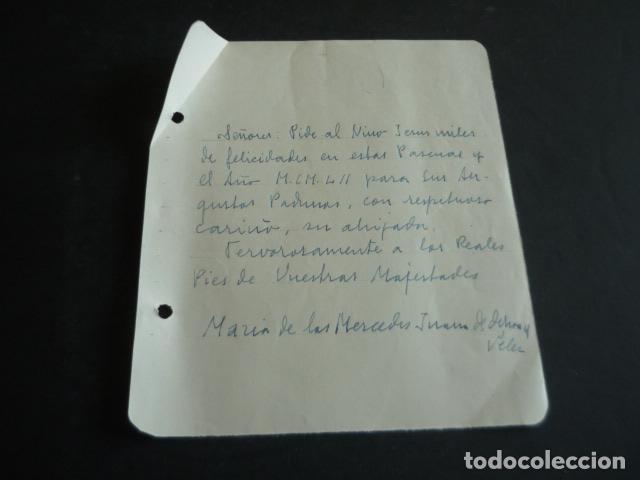 Señores: Pide al Nino Jesus miles
de felicidades en estas Pascuas y
el Año M.CM.LII para sus Au-
gustos Padrinos, con respetuoso
cariño, su ahijada.
Fervorosamente a los Reales
Pies de Vuestras Majestades
Maria de las Mercedes de y
Velez
todocoleccion.net